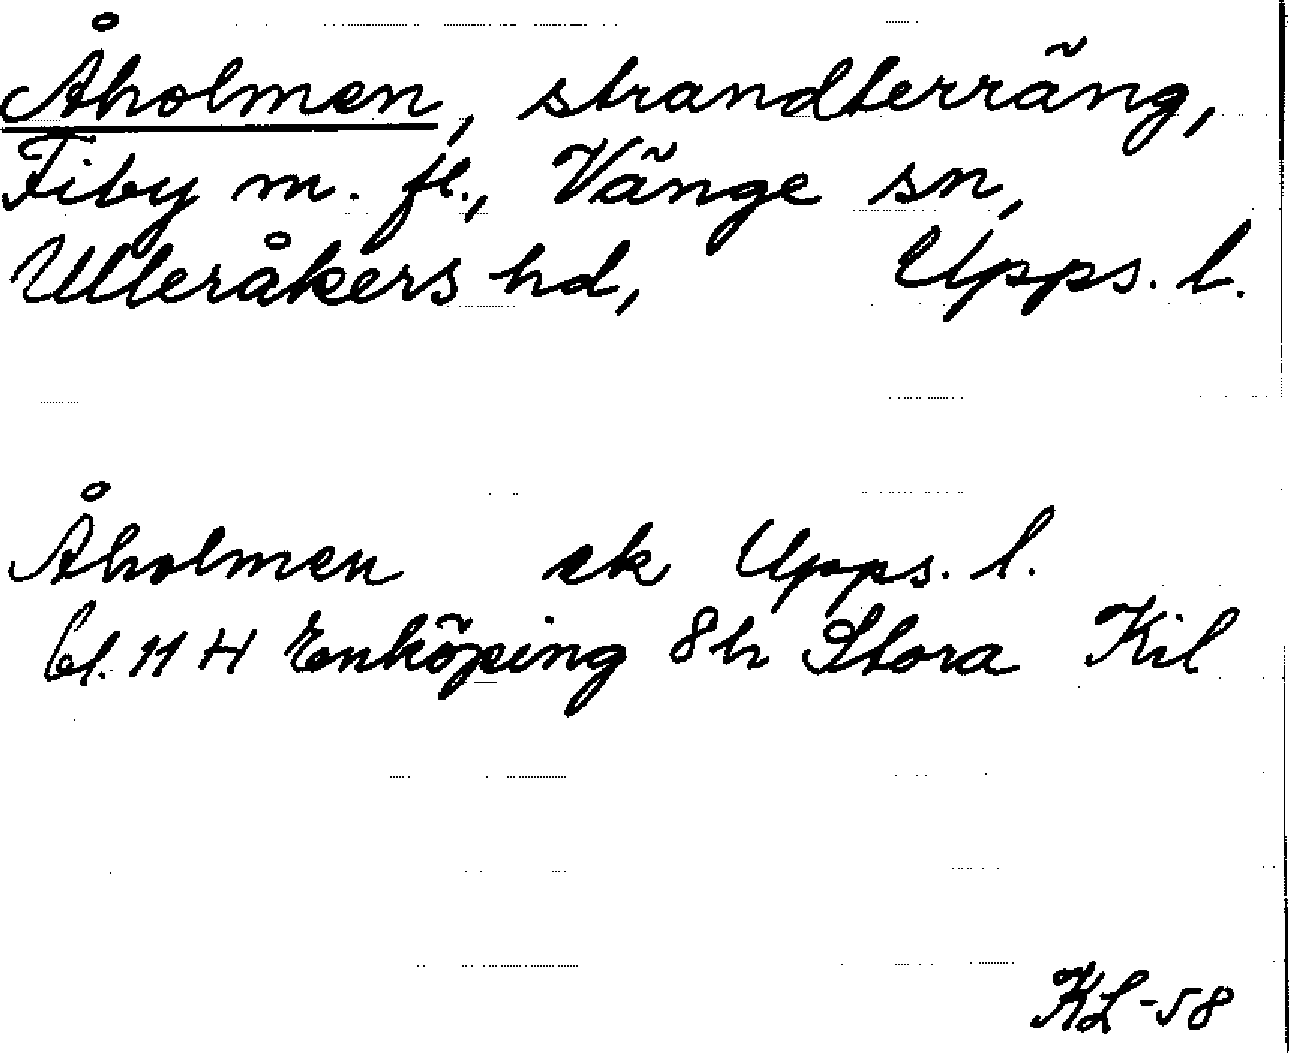 Åholmen, strandterräng,
Fiby m. fl., Vänge sn,
Ulleråkers hd, Upps. l.
Åholmen ek Upps. l.
bl. 11 H Enköping 8h Stora Kil
KL-58